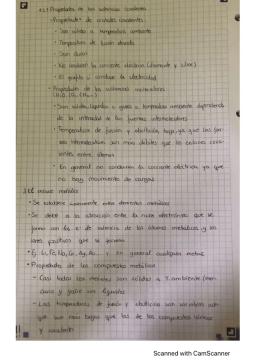 4.2.1 Propiedades de las sustancias covalentes
• Propiedades de cristales covalentes
- Son sólidos a temperatura ambiente
- Temperatura de fusión elevada
- Son duros
- No conducen la corriente eléctrica (diamante y sílice)
- El grafito si conduce la electricidad
• Propiedades de las sustancias moleculares
- Son sólidos, líquidos o gases a temperatura ambiente dependiendo
de la intensidad de las fuerzas intermoleculares
- Temperatura de fusión y ebullición baja, ya que las fuer-
zas intermoleculares son más débiles que los enlaces cova-
lentes entre átomos
- En general no conducen la corriente eléctrica ya que
no hay movimiento de cargas
enlace metálico
• Se establece entre elementos metálicos
• Se debe a la atracción entre la nube electrónica que se
forma con los e⁻ de valencia de los átomos metálicos y los
iones positivos que se forman
• Ej: Li, Fe, Na, Cr, Ag, Au... y en general cualquier metal
• Propiedades de los compuestos metálicos
- Casi todos los metales son sólidos a T. ambiente (mer-
curio y galio son líquidos)
- Las temperaturas de fusión y ebullición son variables aun-
que son más bajas que las de los compuestos iónicos
y covalentes
Scanned with CamScanner